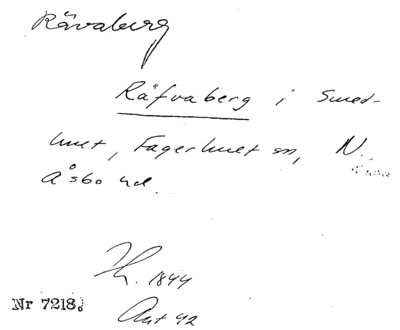 Rävaberg
Räfvaberg i Smed-
hult, Fagerhult sn, N.
Åsbo hd.
1844
Nr 7218.
Ant 42